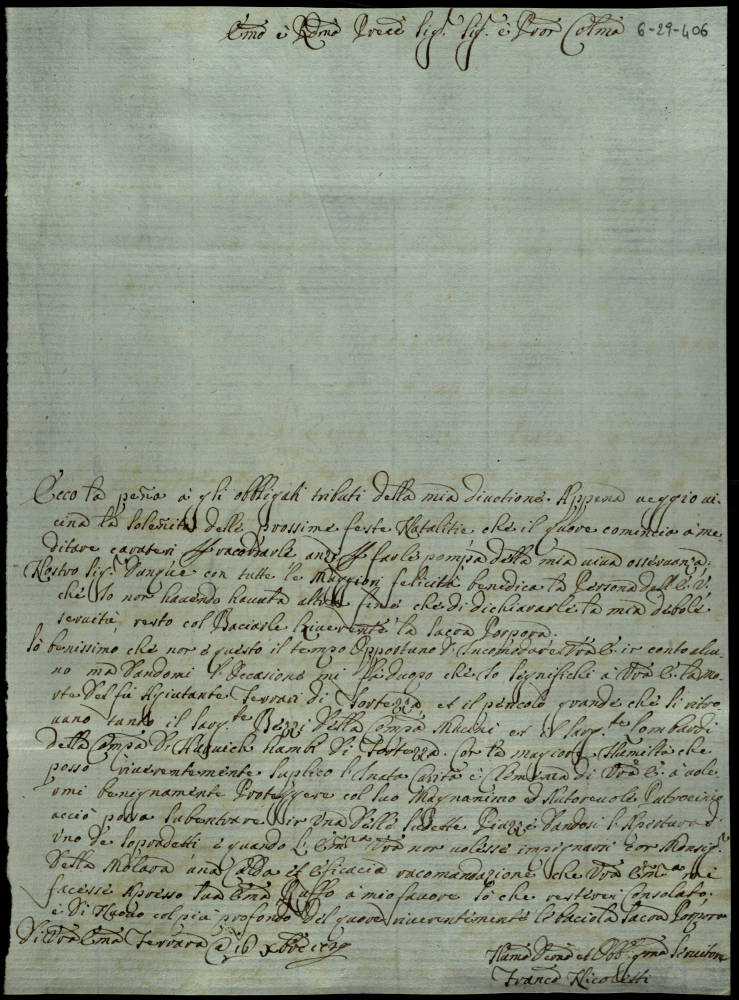 Emō e Rmō Precē Sig.r Sig.r e Pron Colmō 6-29-406
Ecco la pēna à gli obbligati tributi della mia divotione. Appena veggio vi-
cina la solēnità delle prossime feste Natalitie che il quore comincia à me-
ditare caratteri p racordarle anzi p farle pompa della mia viva osservanza:
Nostro Sig.r dunque con tutte le maggiori felicità benedica la Persona dell E. V.
che Io non havendo havuta altro fine che di dichiararle la mia debole
servitù, resto col Baciarle riverente la Sacra Porpora.
Sò benissimo che non è questo il tempo Opportuno d'Incomodare Vrā E. in conto alcu-
no mà dandomi l'Occasione mi fà duopo che Io significhi à Vrā E. la mo-
rte del fù Agiutante Ferrari di Fortezza et il pericolo grande che si ritro-
vano tanto il Sarg.te Bezzi della Compā Mucini et il Sarg.te Lombardi
della Compā di ambi di Fortezza. Con la magior Humiltà che
posso riverentemente suplico l'Inata Carità e Clemenza di Vrā E. à vole-
rmi benignamente Proteggere col suo Magnanimo et Autorevole Patrocinio
acciò possa subentrare in Una delle sudette Piazze dandosi l'Apertura d
uno de sopradetti e quando l'Emza Vrā non volesse impegnarsi con Monsig.r
della Molara una Calda et eficacia racomandazione che Vrā Emza mi
facesse Apresso Sua Emza Ruffo à mio favore Sò che resterei Consolato;
e di Nuovo col più profondo del quore riverentemente le bacio la Sacra Porpora
Di Vrā Emza Ferrara
Humō Devmō et Obb.mo Servitore
Francō Nicoletti